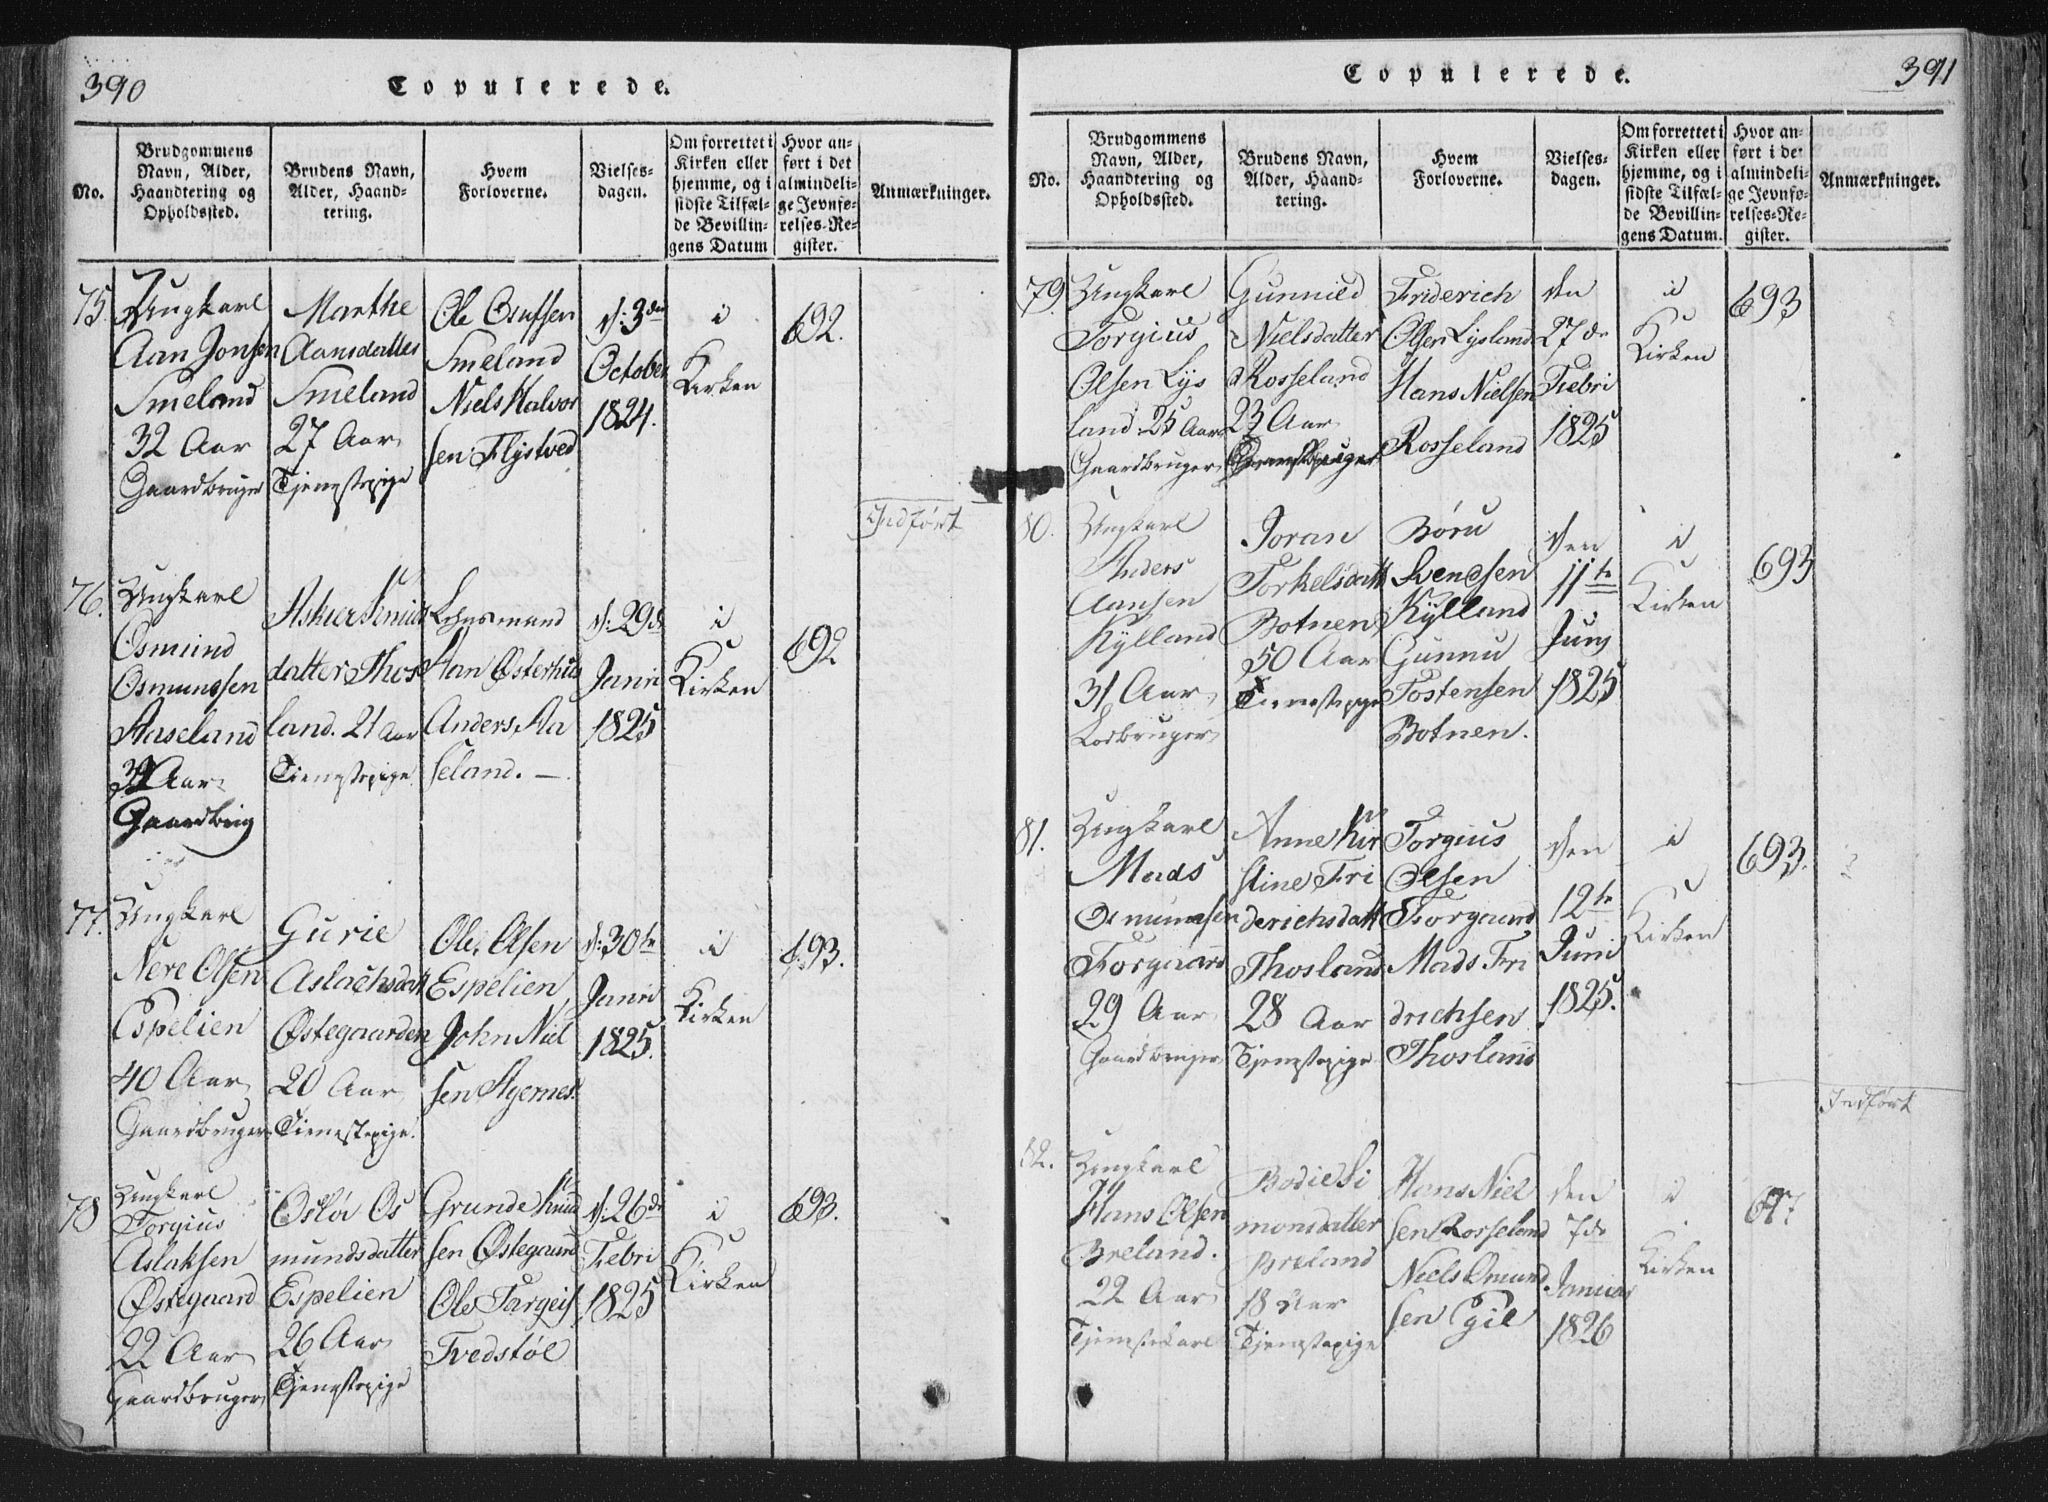 390
Copulerede.
No.
Brudgommens
Navn, Alder,
Haandtering og
Opholdssted.
Brudens Navn,
Alder, Haand-
tering.
Hvem
Forloverne.
Vielses-
dagen.
Om forrettet i
Kirken eller
hjemme, og i
sidste Tilfæl-
de Bevillin-
gens Datum
Hvor an-
ført i det
almindeli-
ge Jevnfø-
relses-Re-
gister.
Anmærkninger.
75
Ungkarl
Aan Jonsen
Smeland
32 Aar
Gaardbruger
Marthe
Aansdatter
Smeland
27 Aar
Tjenestepige
Ole Osufsen
Smeland
Niels Halvor
sen Flystved
d: 3die
October
1824.
i
Kirken
692.
Indført
76.
Ungkarl
Osmund
Osmundsen
Aaseland
Aar
Gaardbrug
datter Thos
land. 21 Aar
Tienestepige
Lehnsmand
Aan Østerhus
Anders Aa
seland. —
d: 29de
Janri
1825
i
Kirken
692
77.
Ungkarl
Nere Olsen
Espelien
40 Aar
Gaardbruger
Gurie
Aslachsdatt
Østegaarden
20 Aar
Tienestepige.
Ole Olsen
Espelien
John Niel
sen Ayernes.
d: 30te
Janri
1825.
i
Kirken
693.
78
Ungkarl
Torgius
Aslaksen
Østegaard
22 Aar
Gaardbruger
Osló Os
mundsdatter
Espelien
26 Aar
Tjenestepige
Grunde Knud
sen Østegaard
Ole Targeis
Tvedstøl
d: 26de
Febri
1825
i
Kirken
693.
391
Copulerede.
No.
Brudgommens
Navn, Alder,
Haandtering og
Opholdssted.
Brudens Navn,
Alder, Haand-
tering.
Hvem
Forloverne.
Vielses-
dagen.
Om forrettet i
Kirken eller
hjemme, og i
sidste Tilfæl-
de Bevillin-
gens Datum.
Hvor an-
ført i de
almindeli-
ge Jevnfø-
relses-Re-
gister.
Anmærkninger.
79.
Ungkarl
Torgius
Olsen Lys
land 25 Aar
Gaardbruger
Gunnild
Nielsdatter
Rosseland
23 Aar
Friderich
Olsen Lysland
Hans Nielsen
Rosseland
den
27de
Febri
1825
i
Kirken
693
80.
Ungkarl
Anders
Aansen
Kylland
31 Aar
Lodbruger
Joran
Torkelsdatt
Botnen
50 Aar
Tienestepige
Børu
Svendsen
Kylland
Gunnu
Tostensen
Botnen.
den
11te
Juny
1825
i
Kirken
693
81.
Ungkarl
Mads
Osmundsen
Forgaard
29 Aar
Gaardbruger
Anne Kir
stine Fri
derichsdatt
Thosland
28 Aar
Tjenestepige
Torgius
Olsen
Forgaard
Mads Fri
drichsen
Thosland
den
12te
Juni
1825.
i
Kirken
693.
Indført
82.
Ungkarl
Hans Olsen
Breland.
22 Aar
Tjenestekarl
Bodie Si
monsdatter
Breland
18 Aar
Tjenestepige
Hans Niel
sen Rosseland
Niels Omund
sen Egil
den
7de
Januar
1826
i
Kirken
697